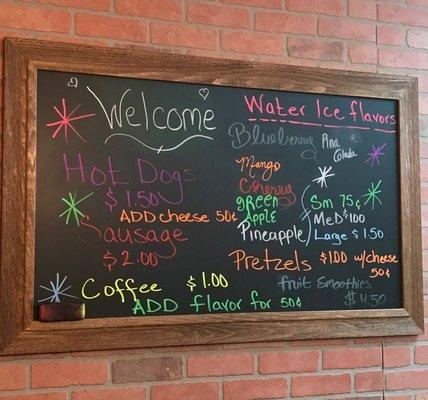 Welcome
Hot Dogs
$1.50
ADD cheese 50¢
Sausage
$2.00
Coffee $1.00
ADD flavor for 50¢
Water Ice flavors
Blueberry
Pina
Colada
Mango
Cherry
green
Apple
Pineapple
Sm 75¢
MeD $1.00
Large $1.50
Pretzels $1.00 w/cheese
50¢
fruit Smoothies
$4.50